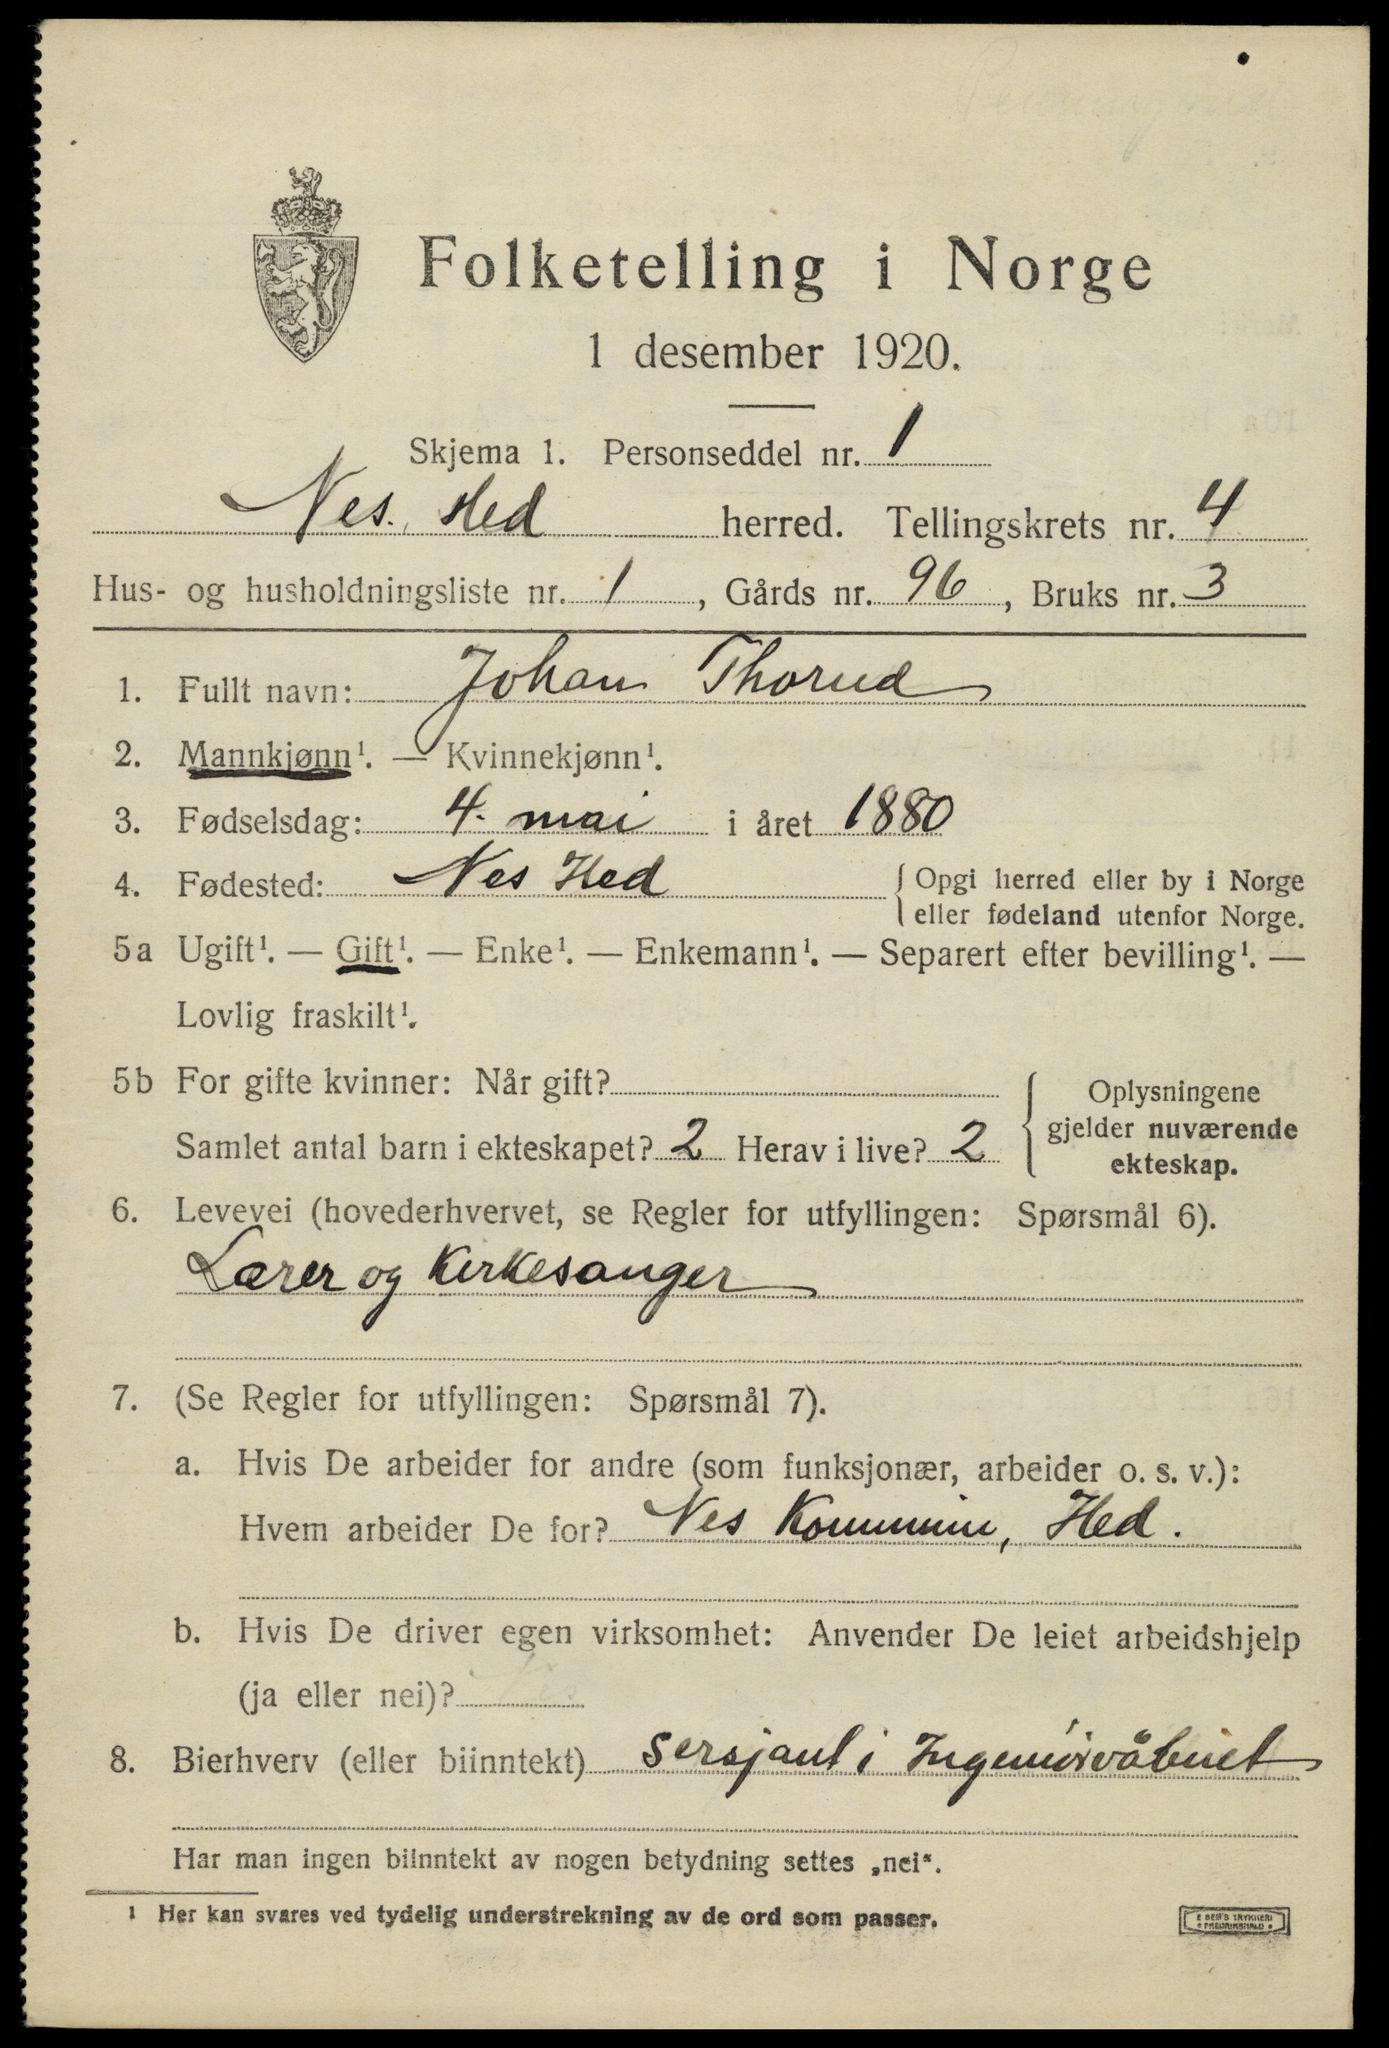 Folketelling i Norge
1 desember 1920.
Skjema 1. Personseddel nr. 1
Nes. Hed herred. Tellingskrets nr. 4
Hus- og husholdningsliste nr. 1, Gårds nr. 96, Bruks nr. 3
1. Fullt navn: Johan Thorud
2. Mannkjønn¹. — Kvinnekjønn¹.
3. Fødselsdag: 4. mai i året 1880
4. Fødested: Nes Hed { Opgi herred eller by i Norge
eller fødeland utenfor Norge.
5a Ugift¹. — Gift¹. — Enke¹. — Enkemann¹. — Separert efter bevilling¹. —
Lovlig fraskilt¹.
5b For gifte kvinner: Når gift?
Samlet antal barn i ekteskapet? 2 Herav i live? 2
{ Oplysningene
gjelder nuværende
ekteskap.
6. Levevei (hovederhvervet, se Regler for utfyllingen: Spørsmål 6).
Lærer og Kirkesanger
7. (Se Regler for utfyllingen: Spørsmål 7).
a. Hvis De arbeider for andre (som funksjonær, arbeider o. s. v.):
Hvem arbeider De for? Nes Kommune, Hed.
b. Hvis De driver egen virksomhet: Anvender De leiet arbeidshjelp
(ja eller nei)?
8. Bierhverv (eller biinntekt) sersjant i Ingeniørvåbnet
Har man ingen biinntekt av nogen betydning settes „nei“.
¹ Her kan svares ved tydelig understrekning av de ord som passer.